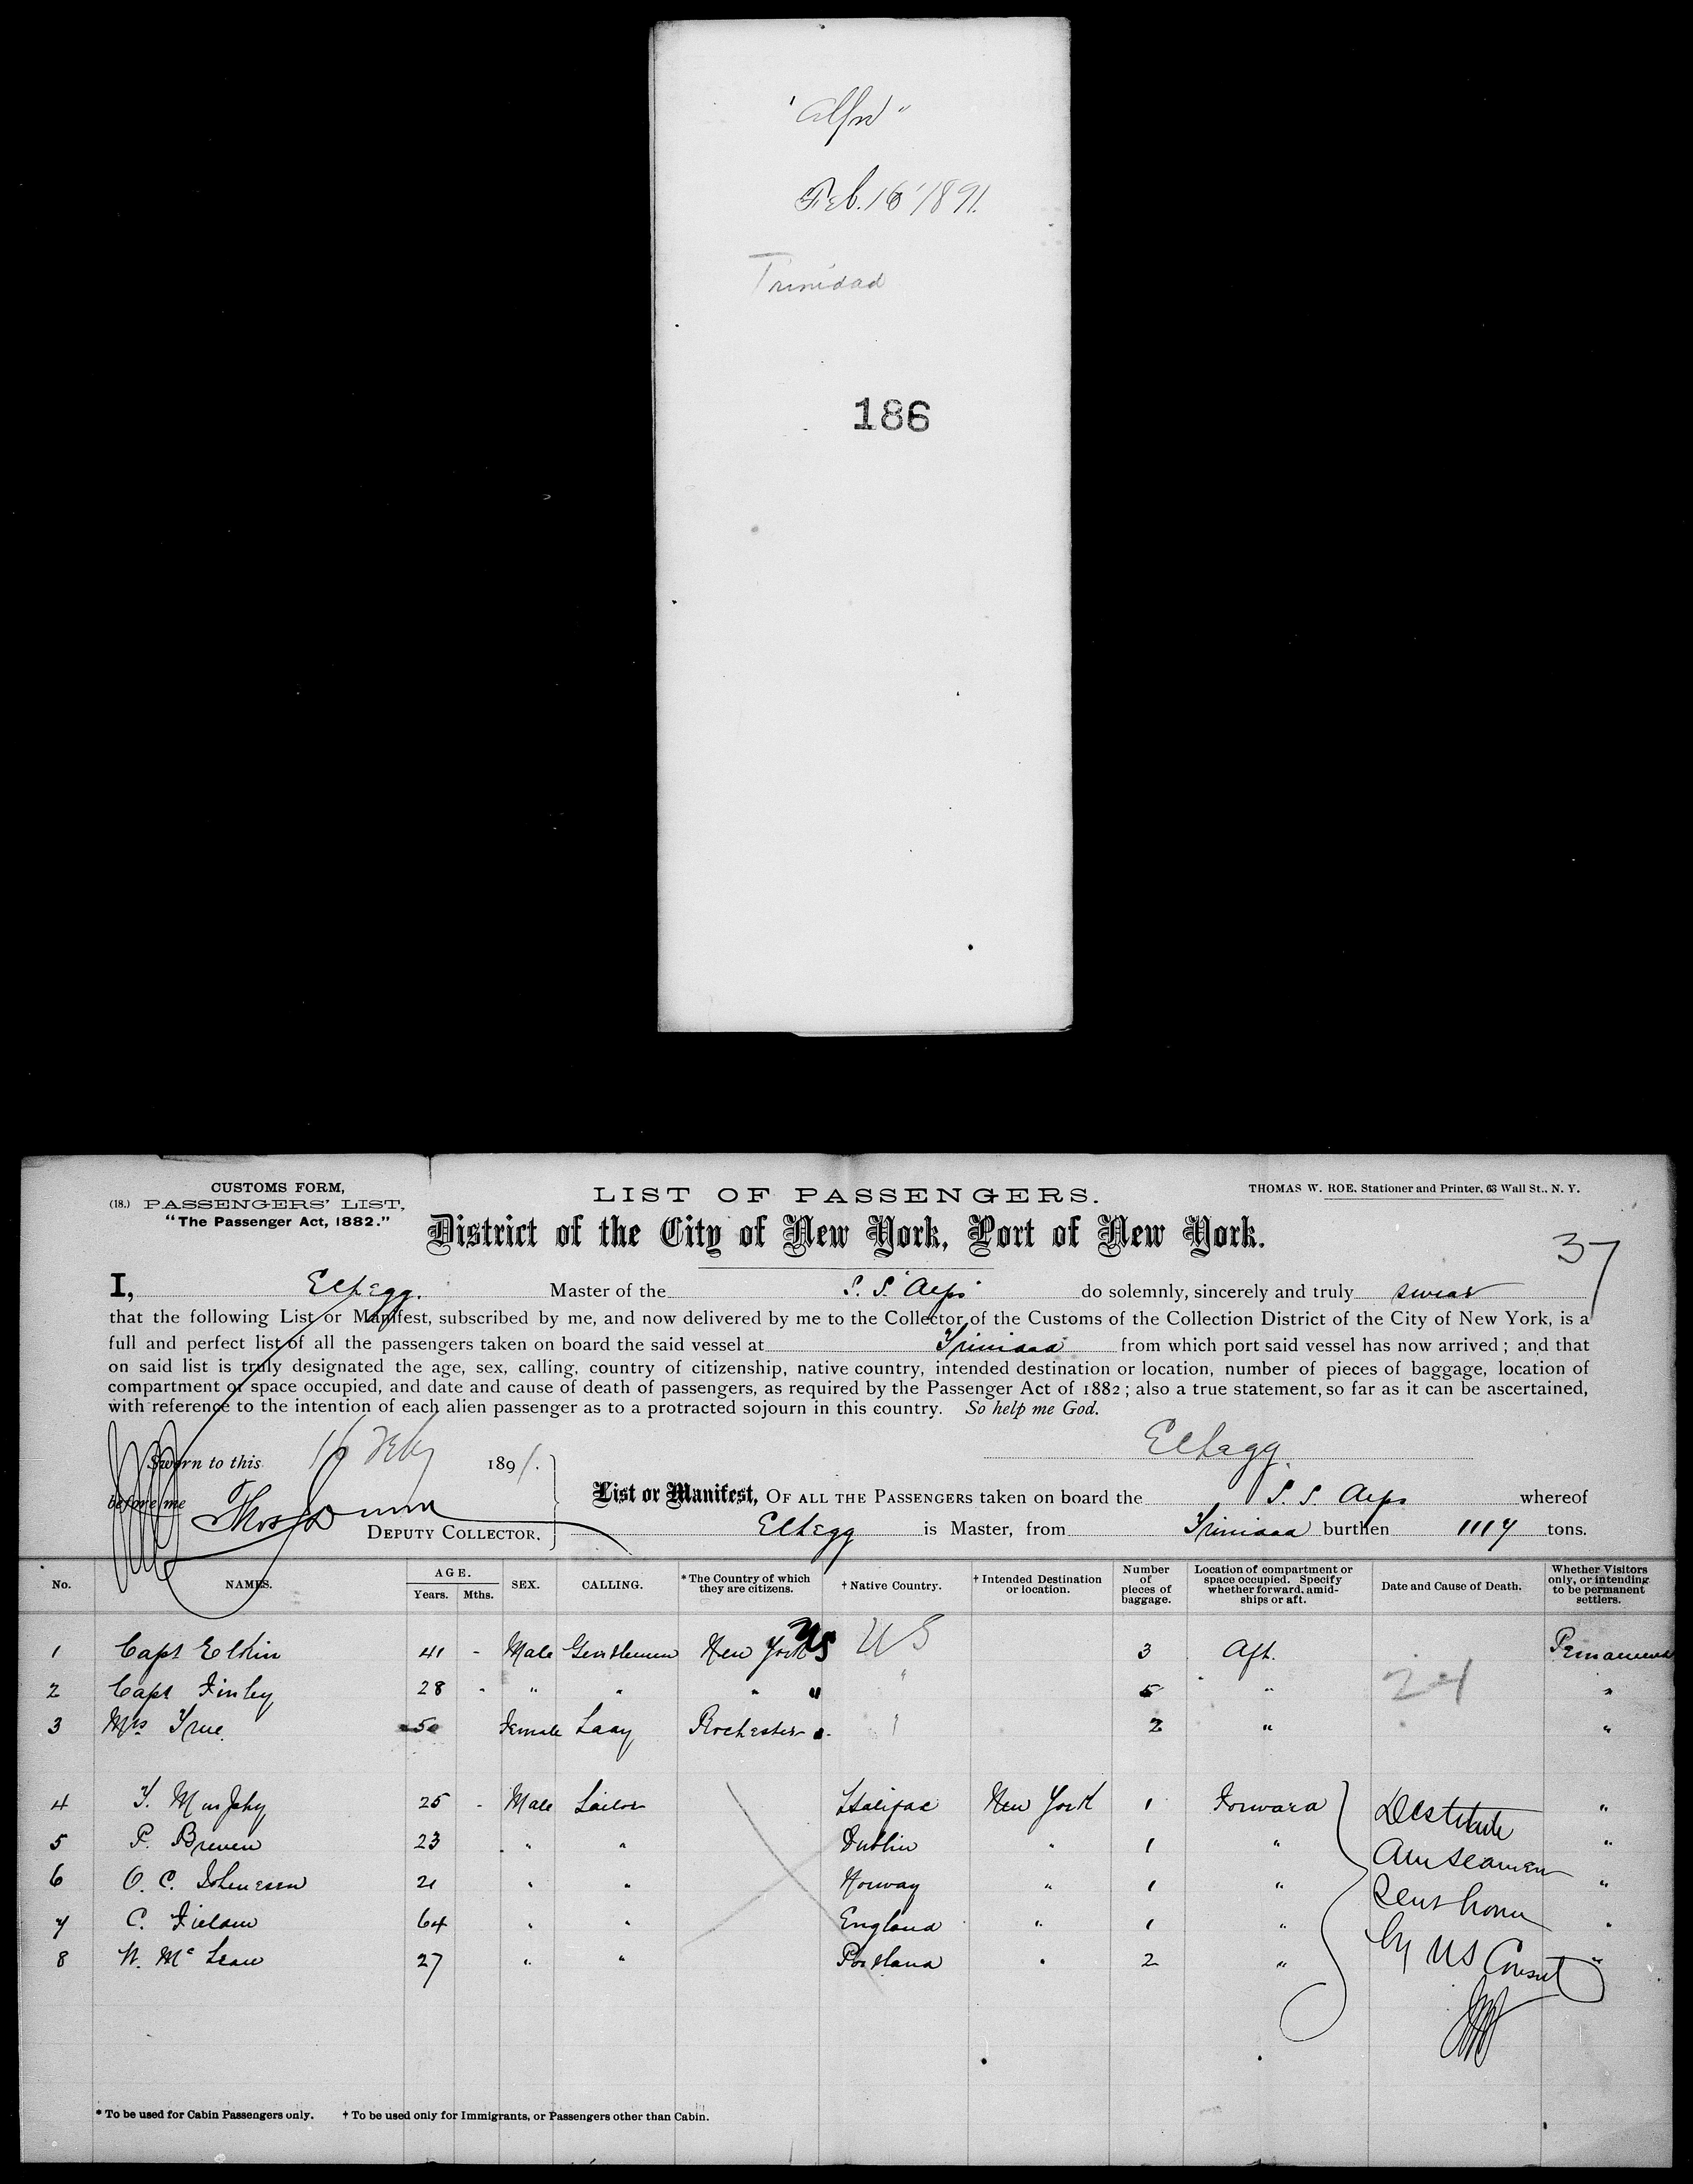 "Alps"
Feb. 16 1891.
Trinidad
186
CUSTOMS FORM,
(18.) PASSENGERS' LIST,
"The Passenger Act, 1882."
LIST OF PASSENGERS.
THOMAS W. ROE, Stationer and Printer, 63 Wall St., N. Y.
District of the City of New York, Port of New York.
37
I, Master of the S. S. Alps do solemnly, sincerely and truly swear
that the following List or Manifest, subscribed by me, and now delivered by me to the Collector of the Customs of the Collection District of the City of New York, is a
full and perfect list of all the passengers taken on board the said vessel at Trinidad from which port said vessel has now arrived; and that
on said list is truly designated the age, sex, calling, country of citizenship, native country, intended destination or location, number of pieces of baggage, location of
compartment or space occupied, and date and cause of death of passengers, as required by the Passenger Act of 1882; also a true statement, so far as it can be ascertained,
with reference to the intention of each alien passenger as to a protracted sojourn in this country. So help me God.
Sworn to this 16 Feby 1891.
before me
Thos Dunn
DEPUTY COLLECTOR.
List or Manifest, OF ALL THE PASSENGERS taken on board the S. S. Alps whereof
is Master, from Trinidad burthen 1117 tons.
No. NAMES. AGE. Years. Mths. SEX. CALLING. *The Country of which they are citizens. †Native Country. †Intended Destination or location. Number of pieces of baggage. Location of compartment or space occupied. Specify whether forward, amidships or aft. Date and Cause of Death. Whether Visitors only, or intending to be permanent settlers.
1 Capt Elkin 41 - Male Gentlemen New York US US 3 Aft. Permanent
2 Capt Finley 28 - " " " " " 5 " "
24
3 Mrs True 50 Female Lady Rochester " 2 " "
4 T. Murphy 25 - Male Sailor Halifac New York 1 Forward Destitute "
5 P. Breven 23 " " Dublin " 1 " Am seamen "
6 O. C. 21 " " Norway " 1 " sent home "
7 C. 64 " " England " 1 " by US Consul "
8 W. Mc Lean 27 " " Portland " 2 " "
* To be used for Cabin Passengers only. † To be used only for Immigrants, or Passengers other than Cabin.